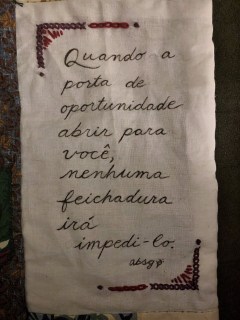 Quando a
porta de
oportunidade
abrir para
você,
nenhuma
feichadura
irá
impedi-lo.